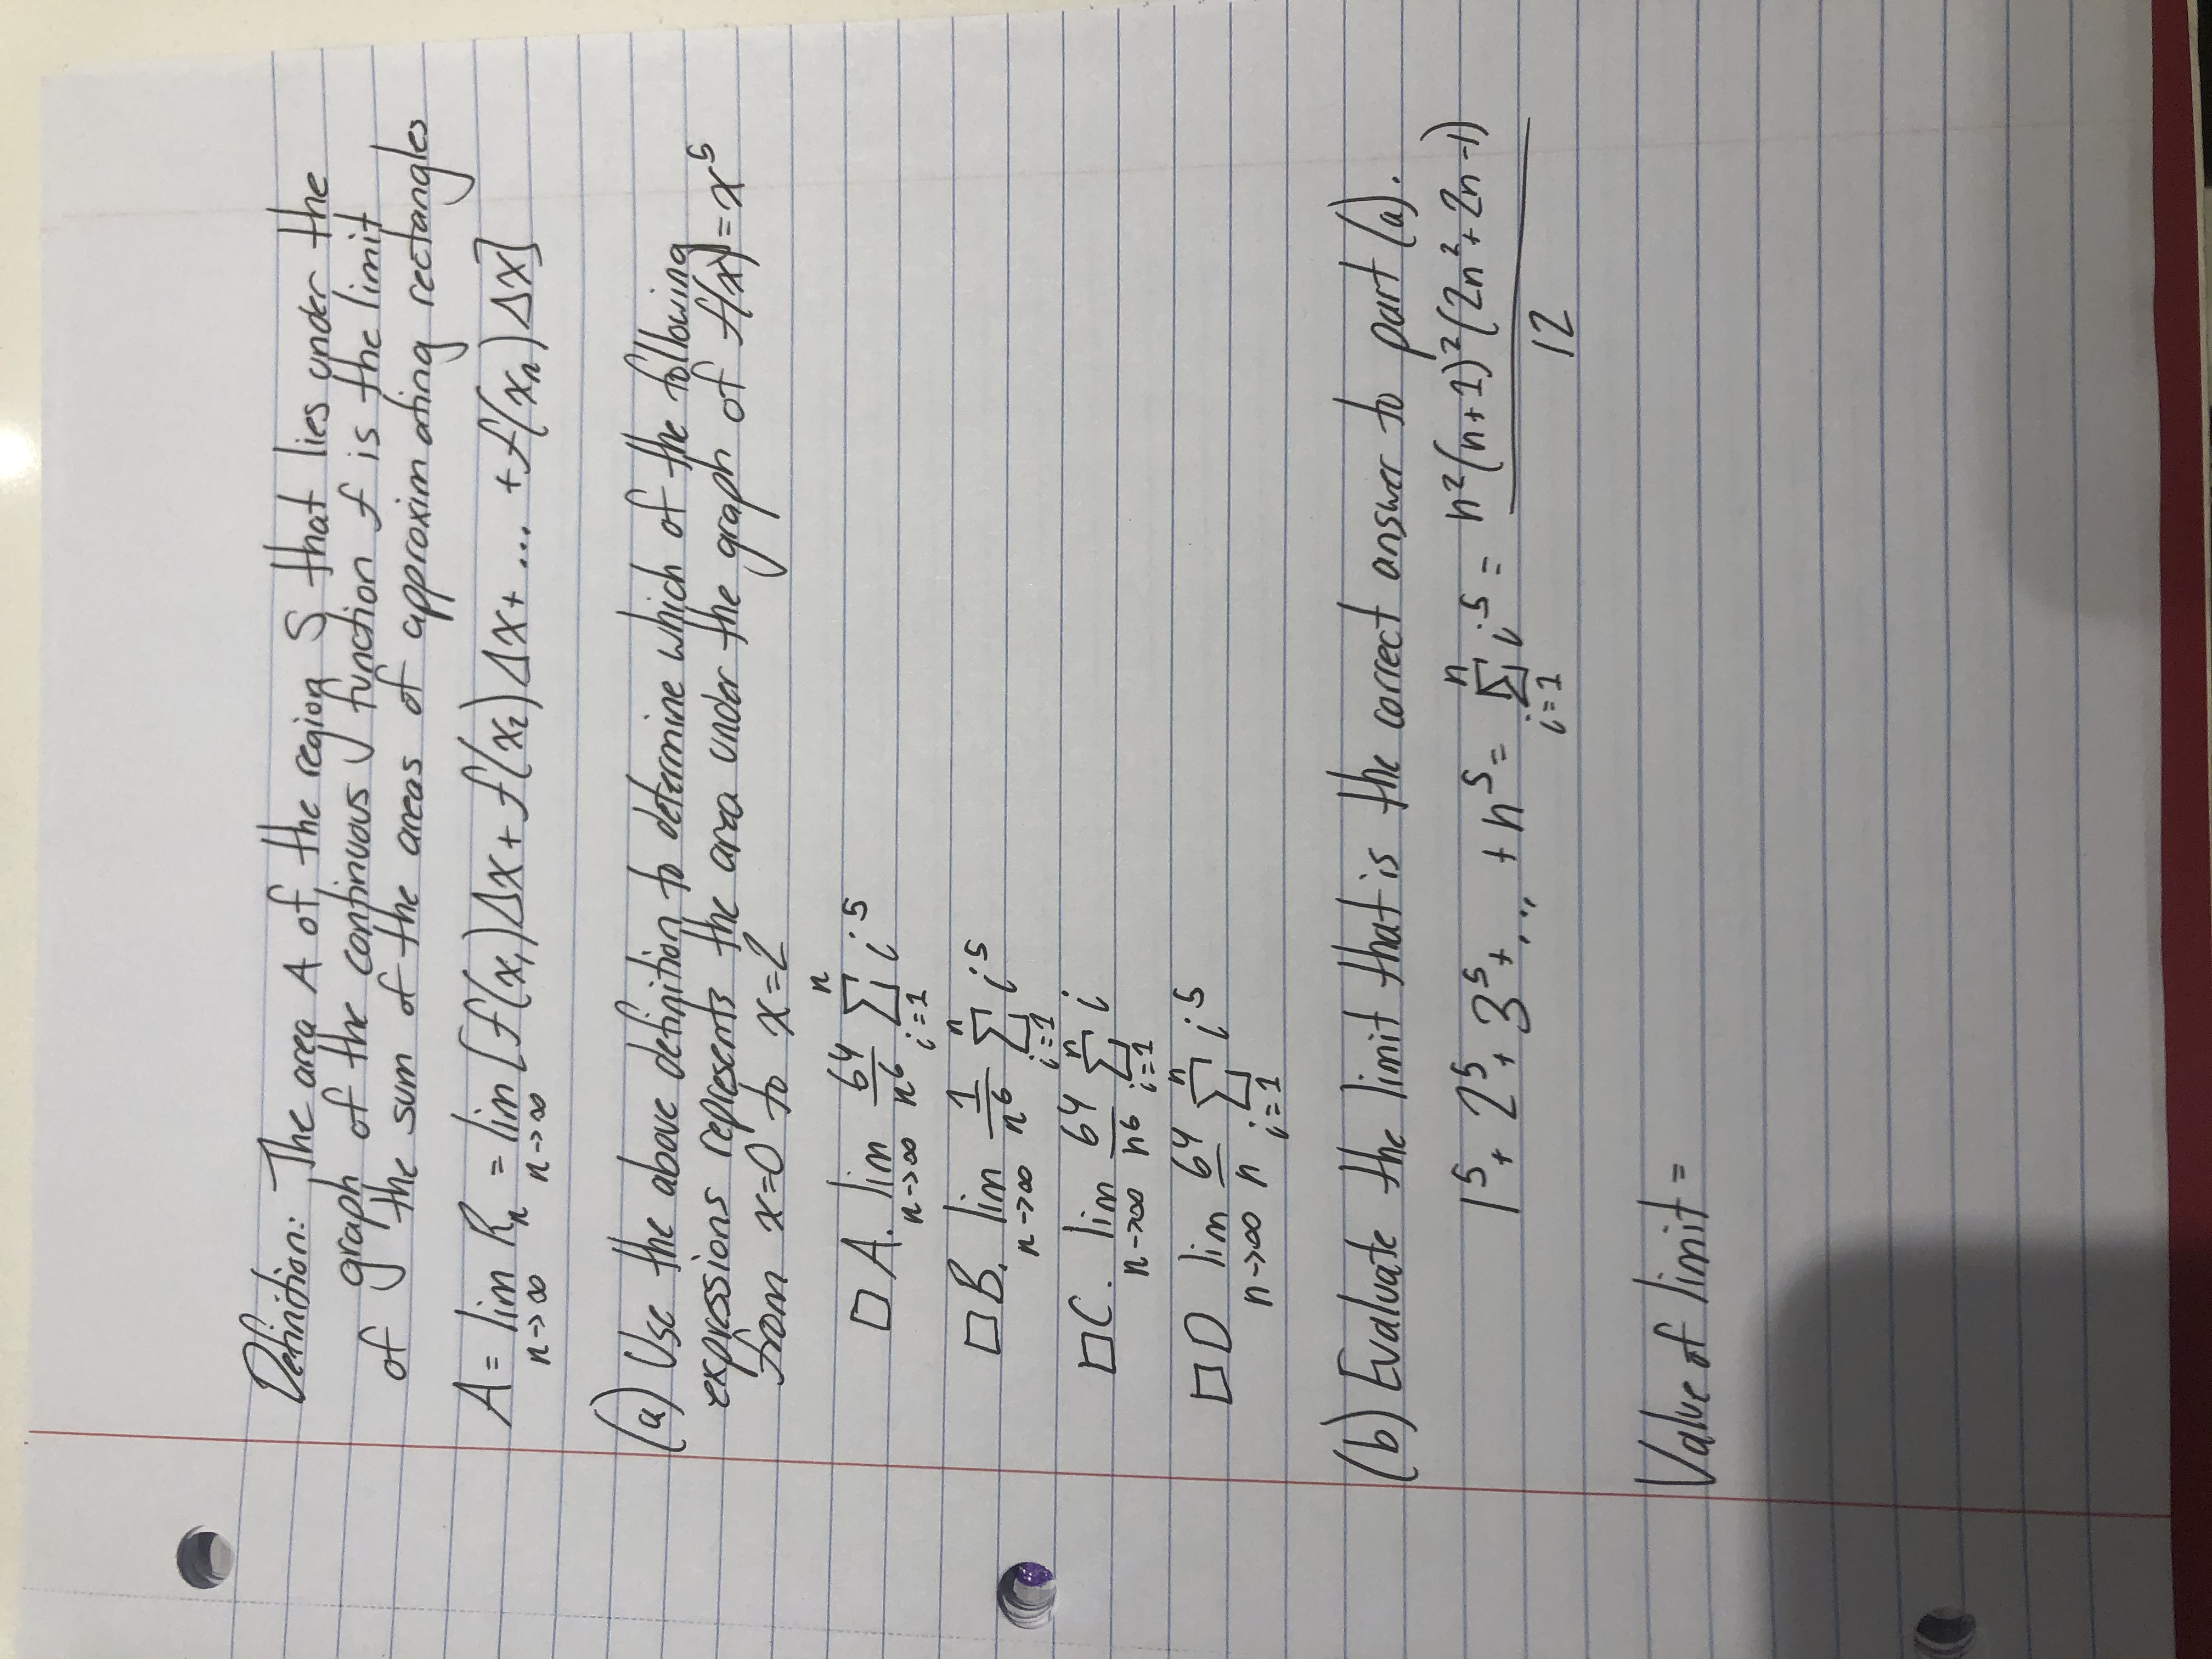 Definition: The area A of the region S that lies under the
graph of the continuous function f is the limit
of the sum of the areas of approximating rectangles
A = lim n→∞ Rn = lim n→∞ [f(x₁)Δx + f(x₂)Δx + ... + f(xn)Δx]
(a) Use the above definition to determine which of the following
expressions represents the area under the graph of f(x) = x⁵
from x=0 to x=2
□ A. lim n→∞ 64/n⁶ Σ i=1 n i⁵
□ B. lim n→∞ 1/n⁶ Σ i=1 n i⁵
□ C. lim n→∞ 64/n⁶ Σ i=1 n i
□ D lim n→∞ 64/n Σ i=1 n i⁵
(b) Evaluate the limit that is the correct answer to part (a).
1⁵ + 2⁵ + 3⁵ + ... + n⁵ = Σ i=1 n i⁵ = n²(n+1)²(2n²+2n-1)/12
Value of limit =